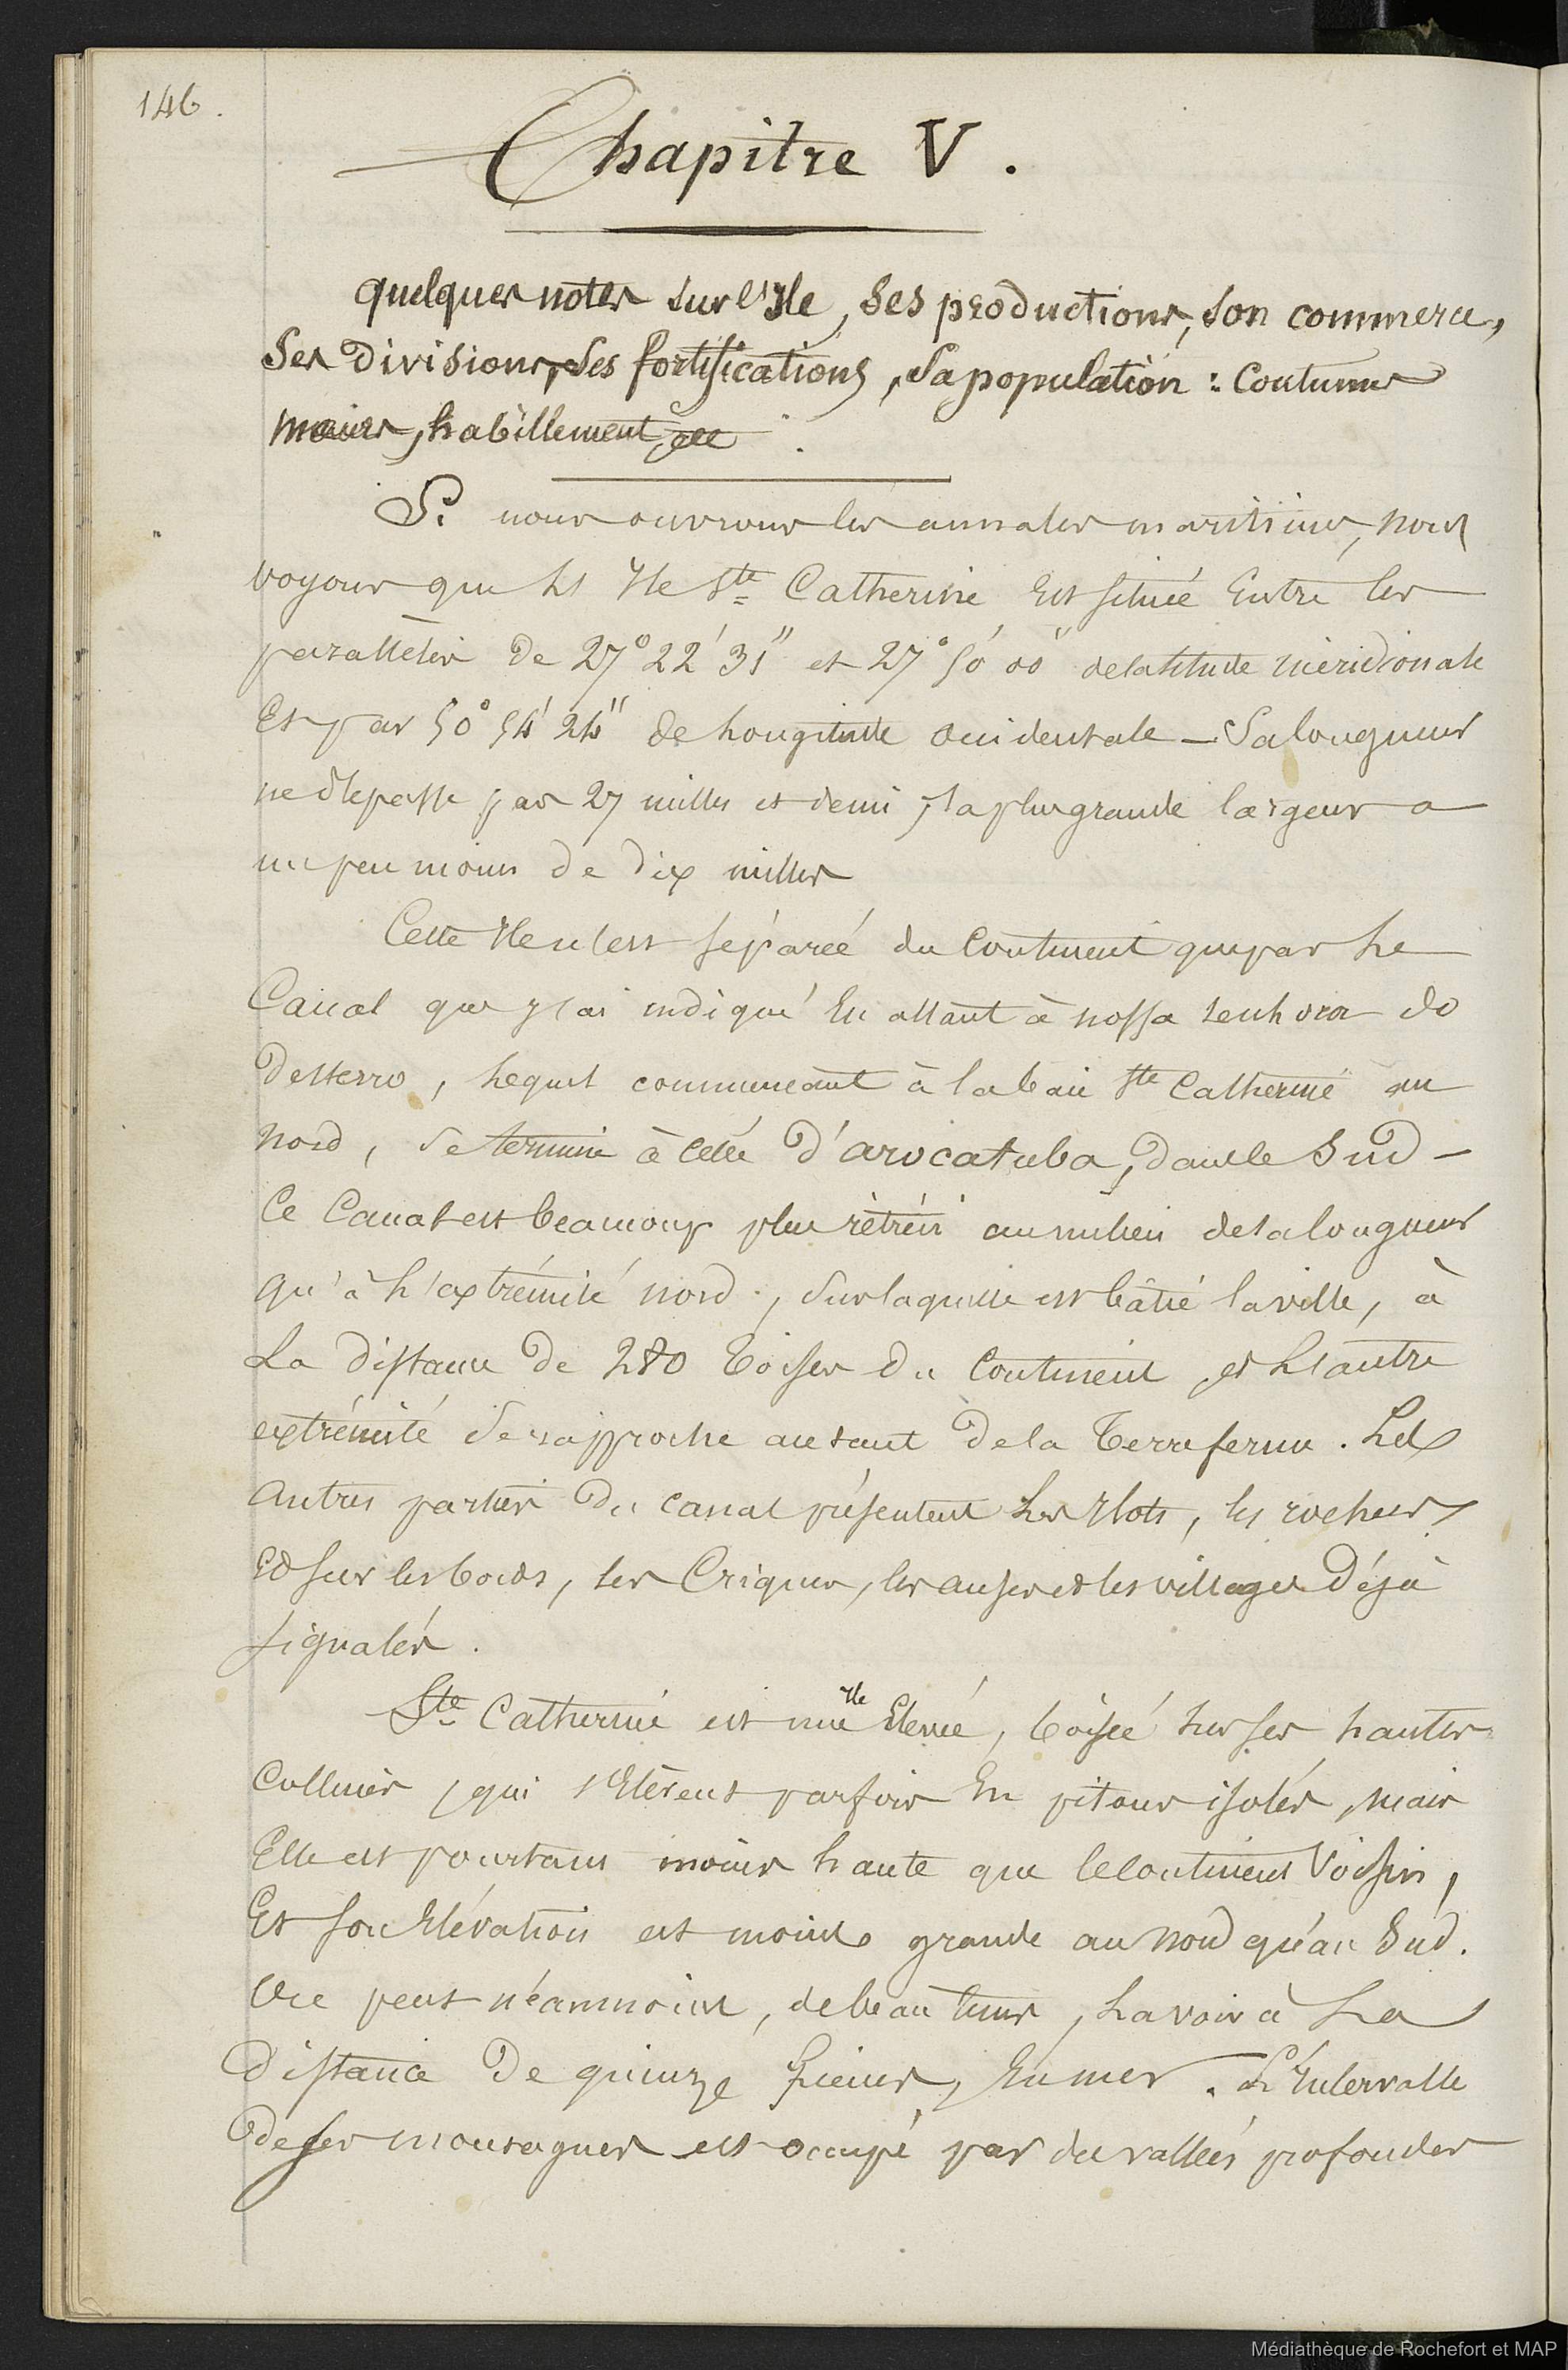 146.
Chapitre V.
quelques notes sur l'Ile, ses productions, son commerce,
ses divisions, ses fortifications, sa population : coutumes
mœurs, habillement, etc.
Si nous ouvrons les annales maritimes, nous
voyons que l'Ile Ste Catherine est située entre les
parallèles de 27° 22' 31" et 27° 50' 00" de latitude méridionale
Et par 50° 54' 24" de longitude occidentale – Sa longueur
ne dépasse pas 27 milles et demi, sa plus grande largeur a
un peu moins de dix milles
Cette Ile n'est séparée du Continent que par le
Canal que j'ai indiqué En allant à nossa senhora do
desterro, lequel commencant à la baie Ste Catherine au
nord, se termine à celle d'arocatuba, dans le Sud –
Ce Canal est beaucoup plus rétréci au milieu de sa longueur
qu'à l'extrémité nord, sur laquelle est bâtie la ville, à
La distance de 280 toises du Continent, et l'autre
extrémité se rapproche autant de la terre ferme. Les
autres parties du canal présentent les Ilots, les rochers,
Et sur les bords, les Criques, les anses et les villages déjà
signalés.
Ste Catherine est une Ile Elevée, boisée sur ses hautes
Collines, qui s'Elèvent parfois En pitons isolés, mais
Elle est pourtant moins haute que le continent Voisin,
Et son Elévation est moins grande au nord qu'au Sud.
On peut néanmoins, de beau temps, la voir à La
distance de quinze lieues, En mer. L'Intervalle
de ses montagnes est occupé par des vallées profondes
Médiathèque de Rochefort et MAP